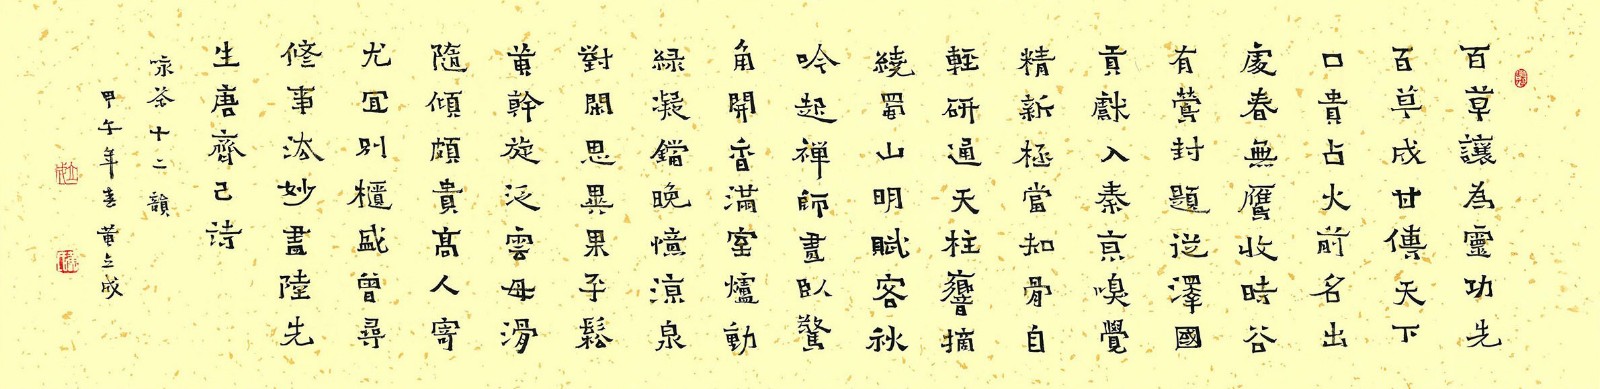 百草讓為靈功先
百草成甘傳天下
口貴占火前名出
處春無鴈收時谷
有鶯封題從澤國
貢獻入秦京嗅覺
精新極當知骨自
輕研通天柱響摘
繞蜀山明賦客秋
吟起禅師晝臥驚
角開香滿室爐動
緑凝鐺晚憶涼泉
對閑思異果平鬆
黃幹旋泛雲母滑
隨傾頗貴髙人寄
尤宜别櫃盛曾尋
修事法妙盡陸先
生唐齊己詩
咏茶十二韻
甲午年春黃立成